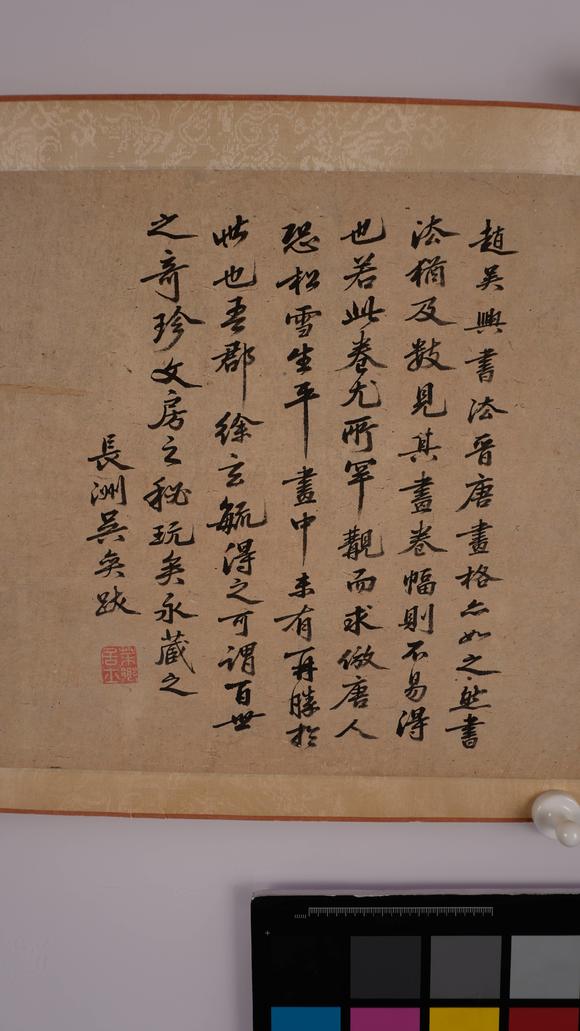 趙吳興書法晉唐畫格亦如之然書
法猶及数見其畫卷幅則不易得
也若此卷尤所罕覯而求倣唐人
恐松雪生平畫中未有再勝於
此也吾郡徐玄毓得之可謂百世
之奇珍文房之秘玩矣永藏之
長洲吳奕跋